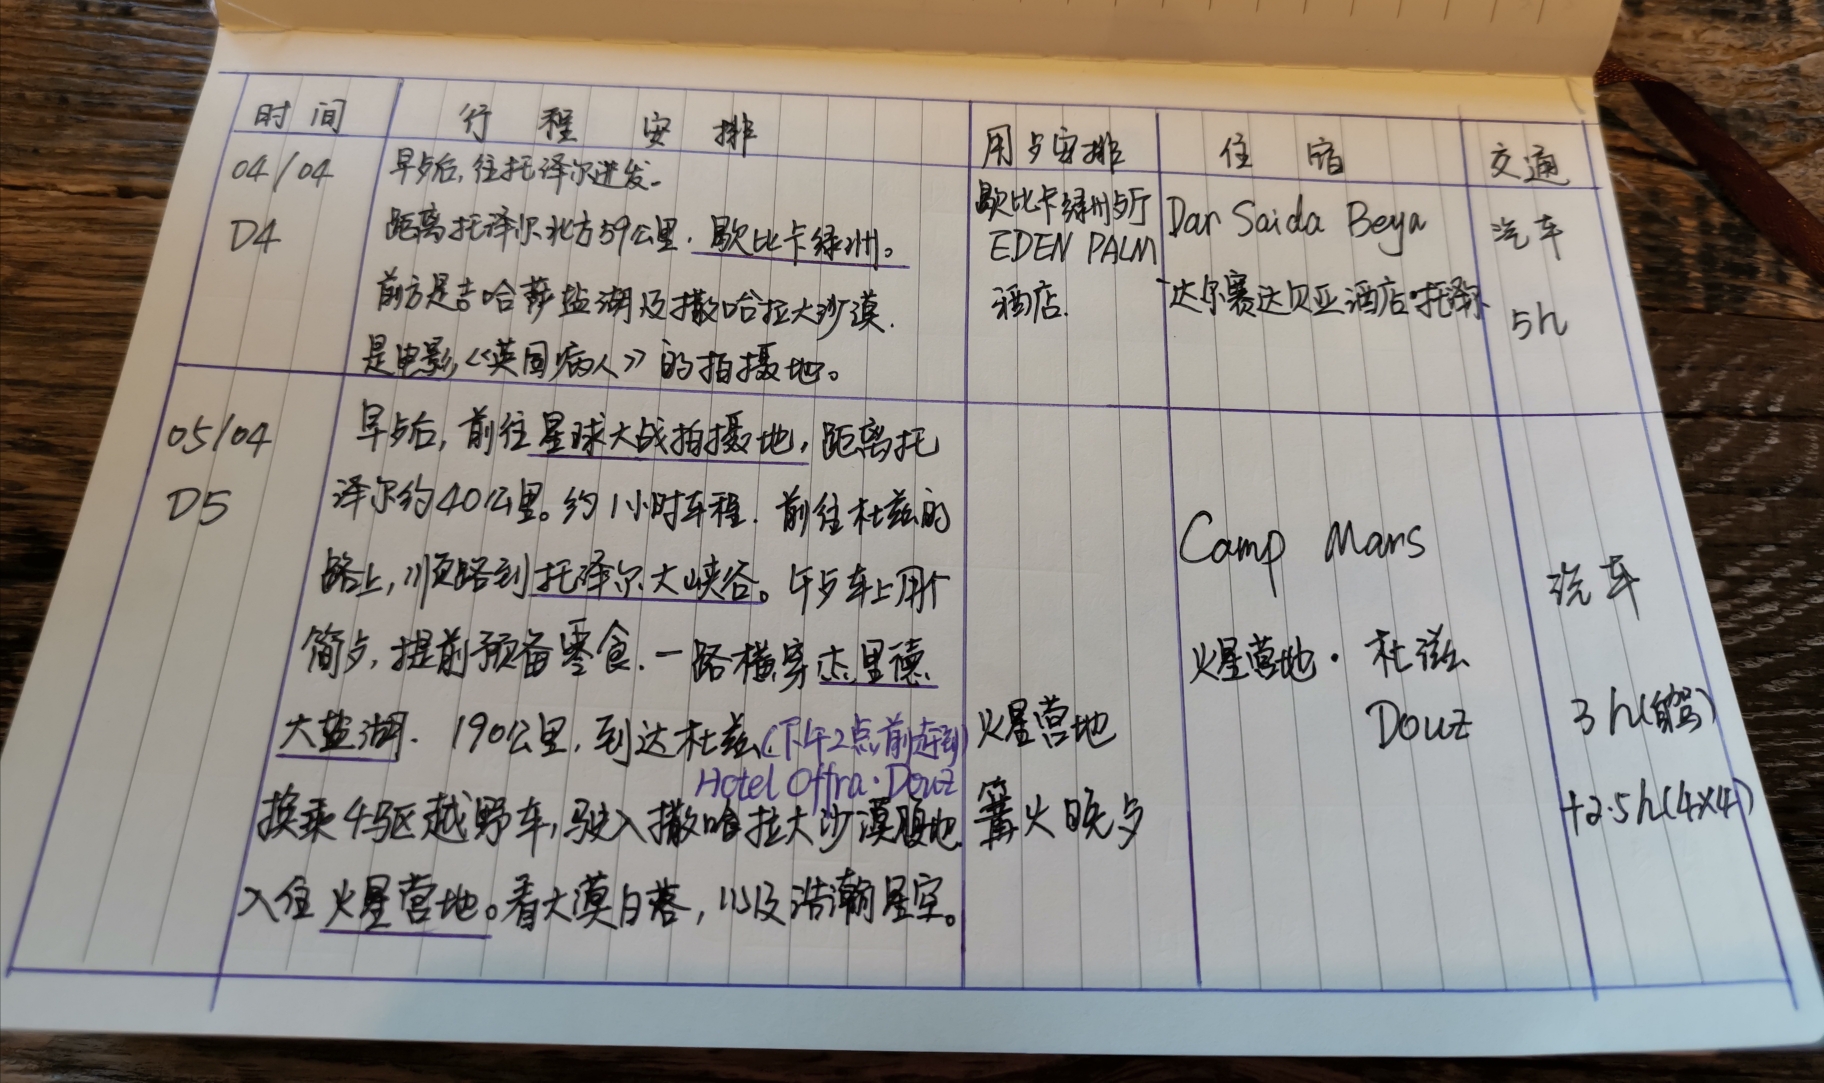 时间 行程安排 用歺安排 住宿 交通
04/04
D4
早歺后,往托泽尔进发。
距离托泽尔北方59公里.歇比卡绿洲。
前方是吉哈萨盐湖及撒哈拉大沙漠.
是电影《英国病人》的拍摄地。
歇比卡绿洲歺厅
EDEN PALM
酒店.
Dar Saida Beya
达尔赛达贝亚酒店·托泽尔
汽车
5h
05/04
D5
早歺后,前往星球大战拍摄地,距离托
泽尔约40公里。约1小时车程.前往杜兹的
路上,顺路到托泽尔大峡谷。午歺车上用个
简歺,提前预备零食.一路横穿杰里德
大盐湖.190公里,到达杜兹(下午2点前赶到)
Hotel Offra·Douz
换乘4驱越野车,驶入撒哈拉大沙漠腹地
入住火星营地。看大漠日落,以及浩瀚星空。
火星营地
篝火晚歺
Camp Mars
火星营地·杜兹
Douz
汽车
3h(自驾)
+2.5h(4x4)